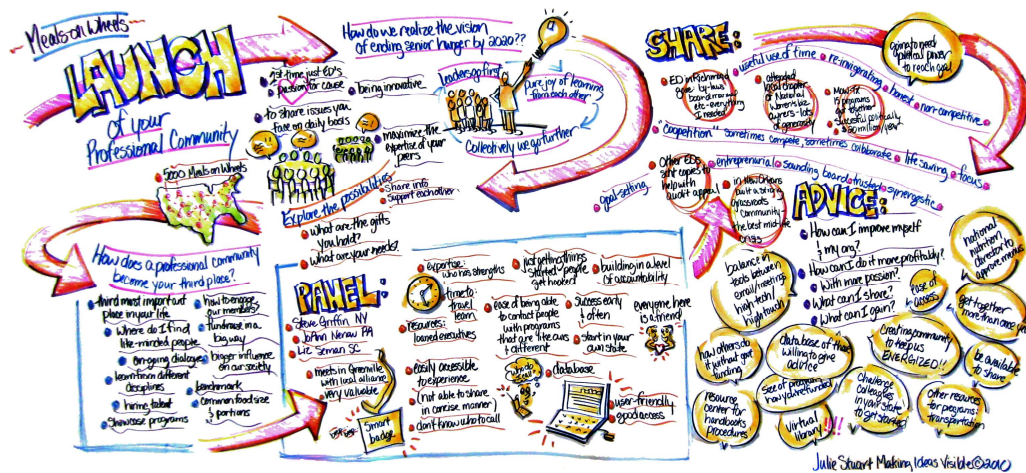 Meals on Wheels
LAUNCH
of your
Professional Community
5000 Meals on Wheels
How does a professional community
become your third place?
third most important
place in your life
Where do I find
like-minded people
on-going dialogue
learn from different
disciplines
hiring talent
showcase programs
how to engage
our members?
fundraise in a
big way
bigger influence
on our society
benchmark
common food size
& portions
How do we realize the vision
of ending senior hunger by 2020??
1st time, just ED's
passion for cause
being innovative
to share issues you
face on daily basis
maximize the
expertise of your
peers
Leaders go first
pure joy of learning
from each other
Collectively we go further
Explore the possibilities
Share info
Support each other
What are the gifts
you hold?
What are your needs?
PANEL:
Steve Griffin NY
JoAnn Nenow PA
Liz Seman SC
meets in Greenville
with local alliance
very valuable
Smart
badge
expertise:
who has strengths
time to
travel
learn
resources:
loaned executives
easily accessible
to experience
(not able to share
in concise manner)
don't know who to call
just getting things
started & people
get hooked!
ease of being able
to contact people
with programs
that are like ours
& different
who do
I call?
building in a level
of accountability
Success early
& often
start in your
own state
everyone here
is a friend!
database
user-friendly
good access
SHARE:
going to need
political power
to reach goal
useful use of time
re-invigorating
honest
non-competitive
ED in Richmond
gave by-laws
board manual
etc - everything
I needed
attended
local chapter
of National
Women's biz
owners - lots
of generosity
Mow-tx
15 programs
get together
Successful politically
$20 million/year
"coopetition" sometimes compete, sometimes collaborate
life saving
focus
Other EDs
sent copies to
help with
audit appeal
goal setting
entrepreneurial
sounding board
trusted
synergistic
in New Orleans
built a strong
grassroots
community -
the best mid-life
crisis
ADVICE:
How can I improve myself
& my org?
How can I do it more profitably?
With more passion?
What can I share?
What can I gain?
balance in
tools between
email/meetings
high tech/
high touch
national
nutrition
director to
approve menus
ease of
access
get together
more than once a year
how others do
it without govt
funding
database of those
willing to give
advice
creating community
to keep us
ENERGIZED!!
be available
to share
size of program
how you're funded
resource
center for
handbooks
procedures
Virtual
library!!!
challenge
colleagues
in your state
to get started
Other resources
for programs:
transportation
Julie Stuart Making Ideas Visible © 2010